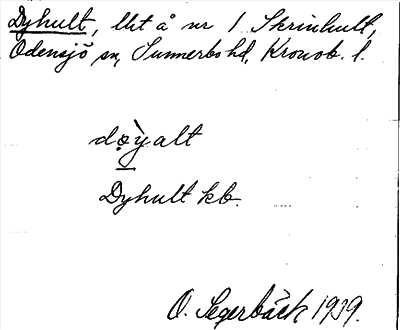 Dyhult, lht å nr 1 Skrinhult,
Odensjö sn, Sunnerbo hd, Kronob. l.
Dyhult kb.
O. Segerbäck 1939.